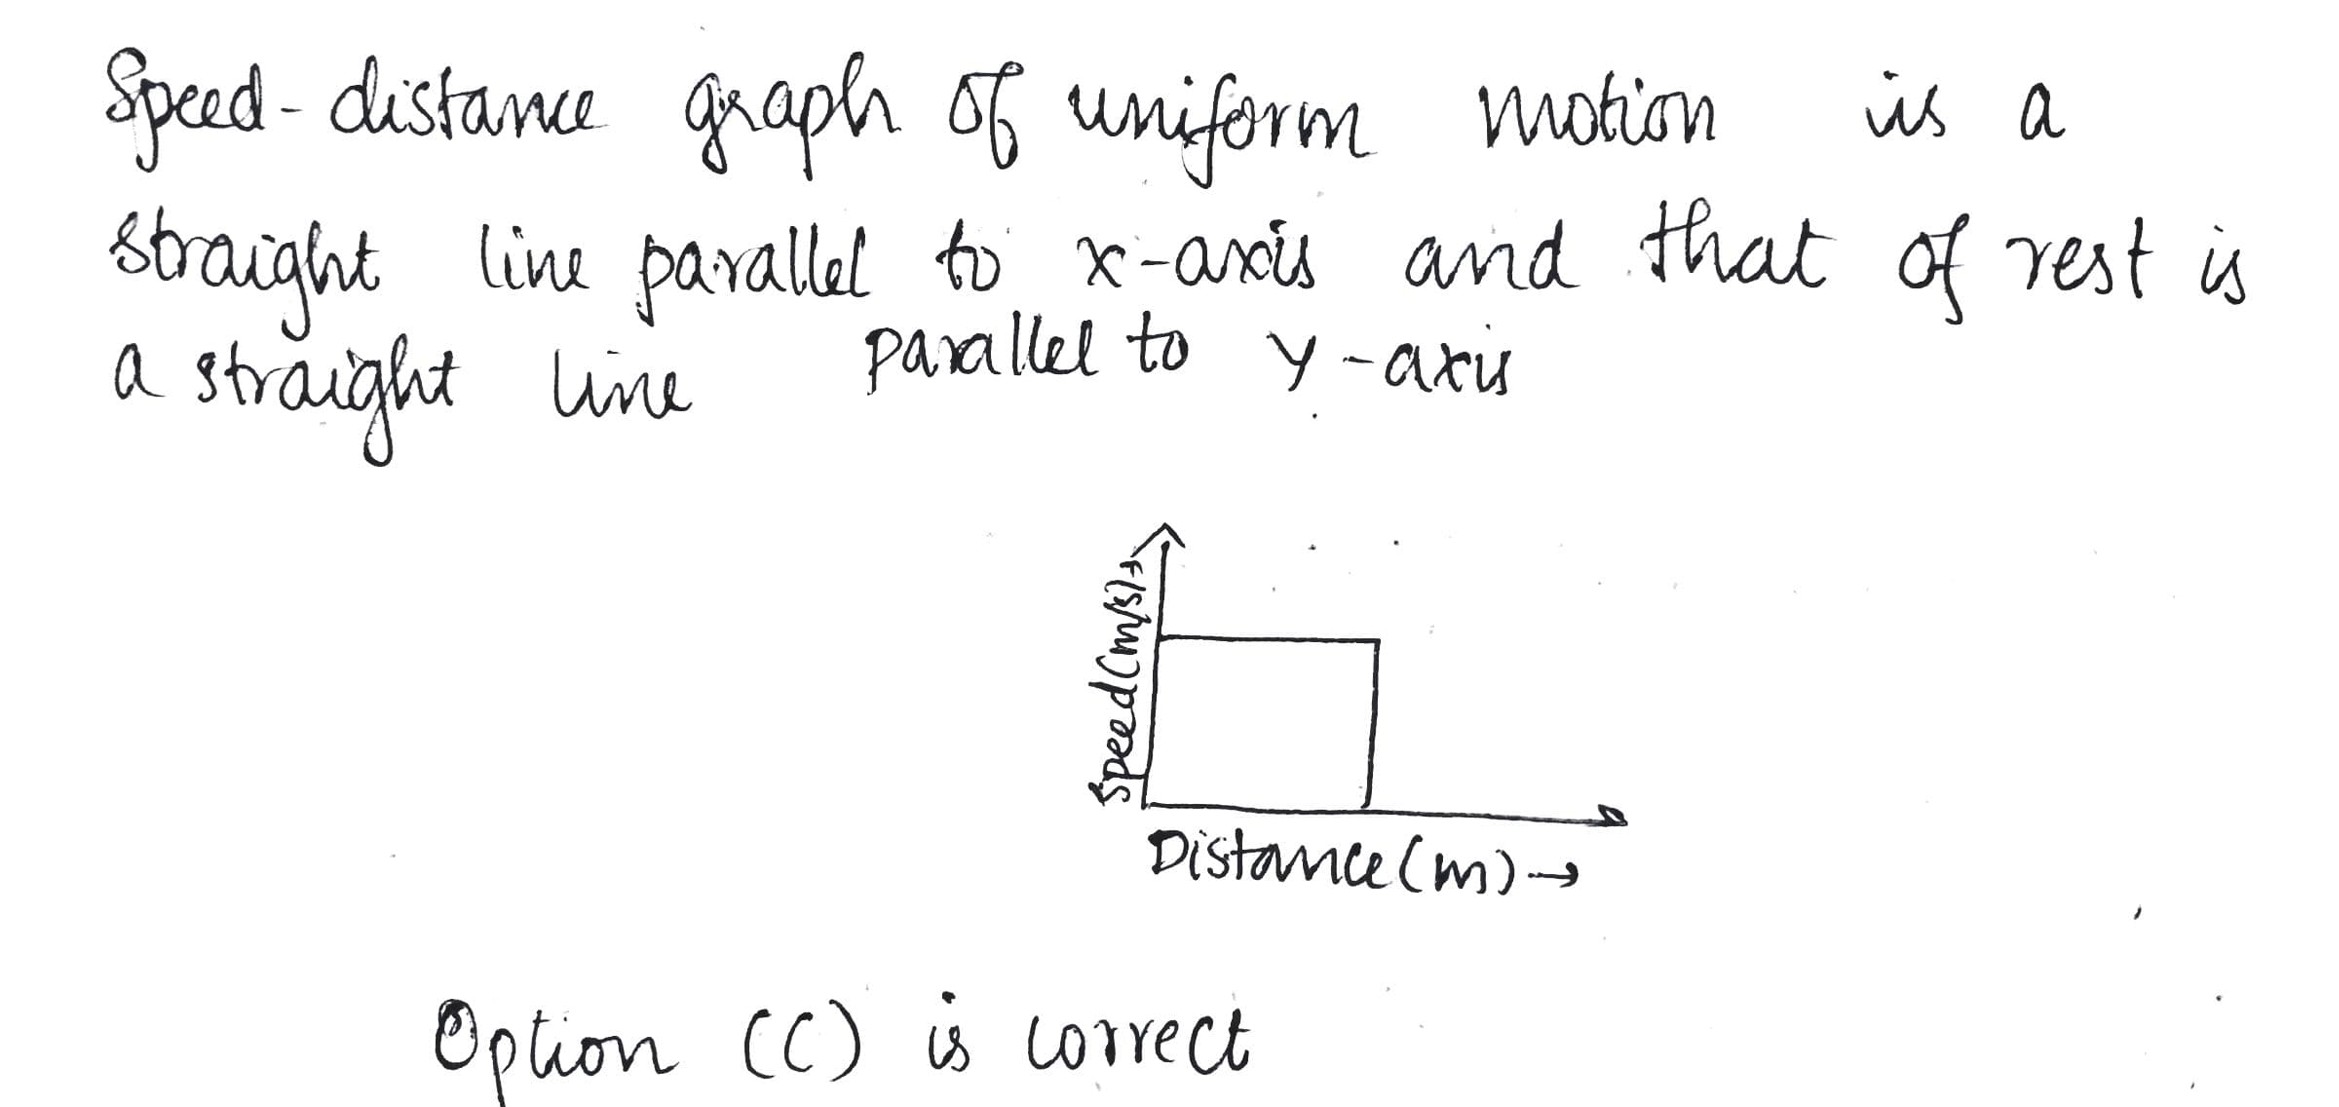 Speed-distance graph of uniform motion is a
straight line parallel to x-axis and that of rest is
a straight line parallel to y-axis
Speed(m/s)→
Distance(m)→
Option (C) is correct